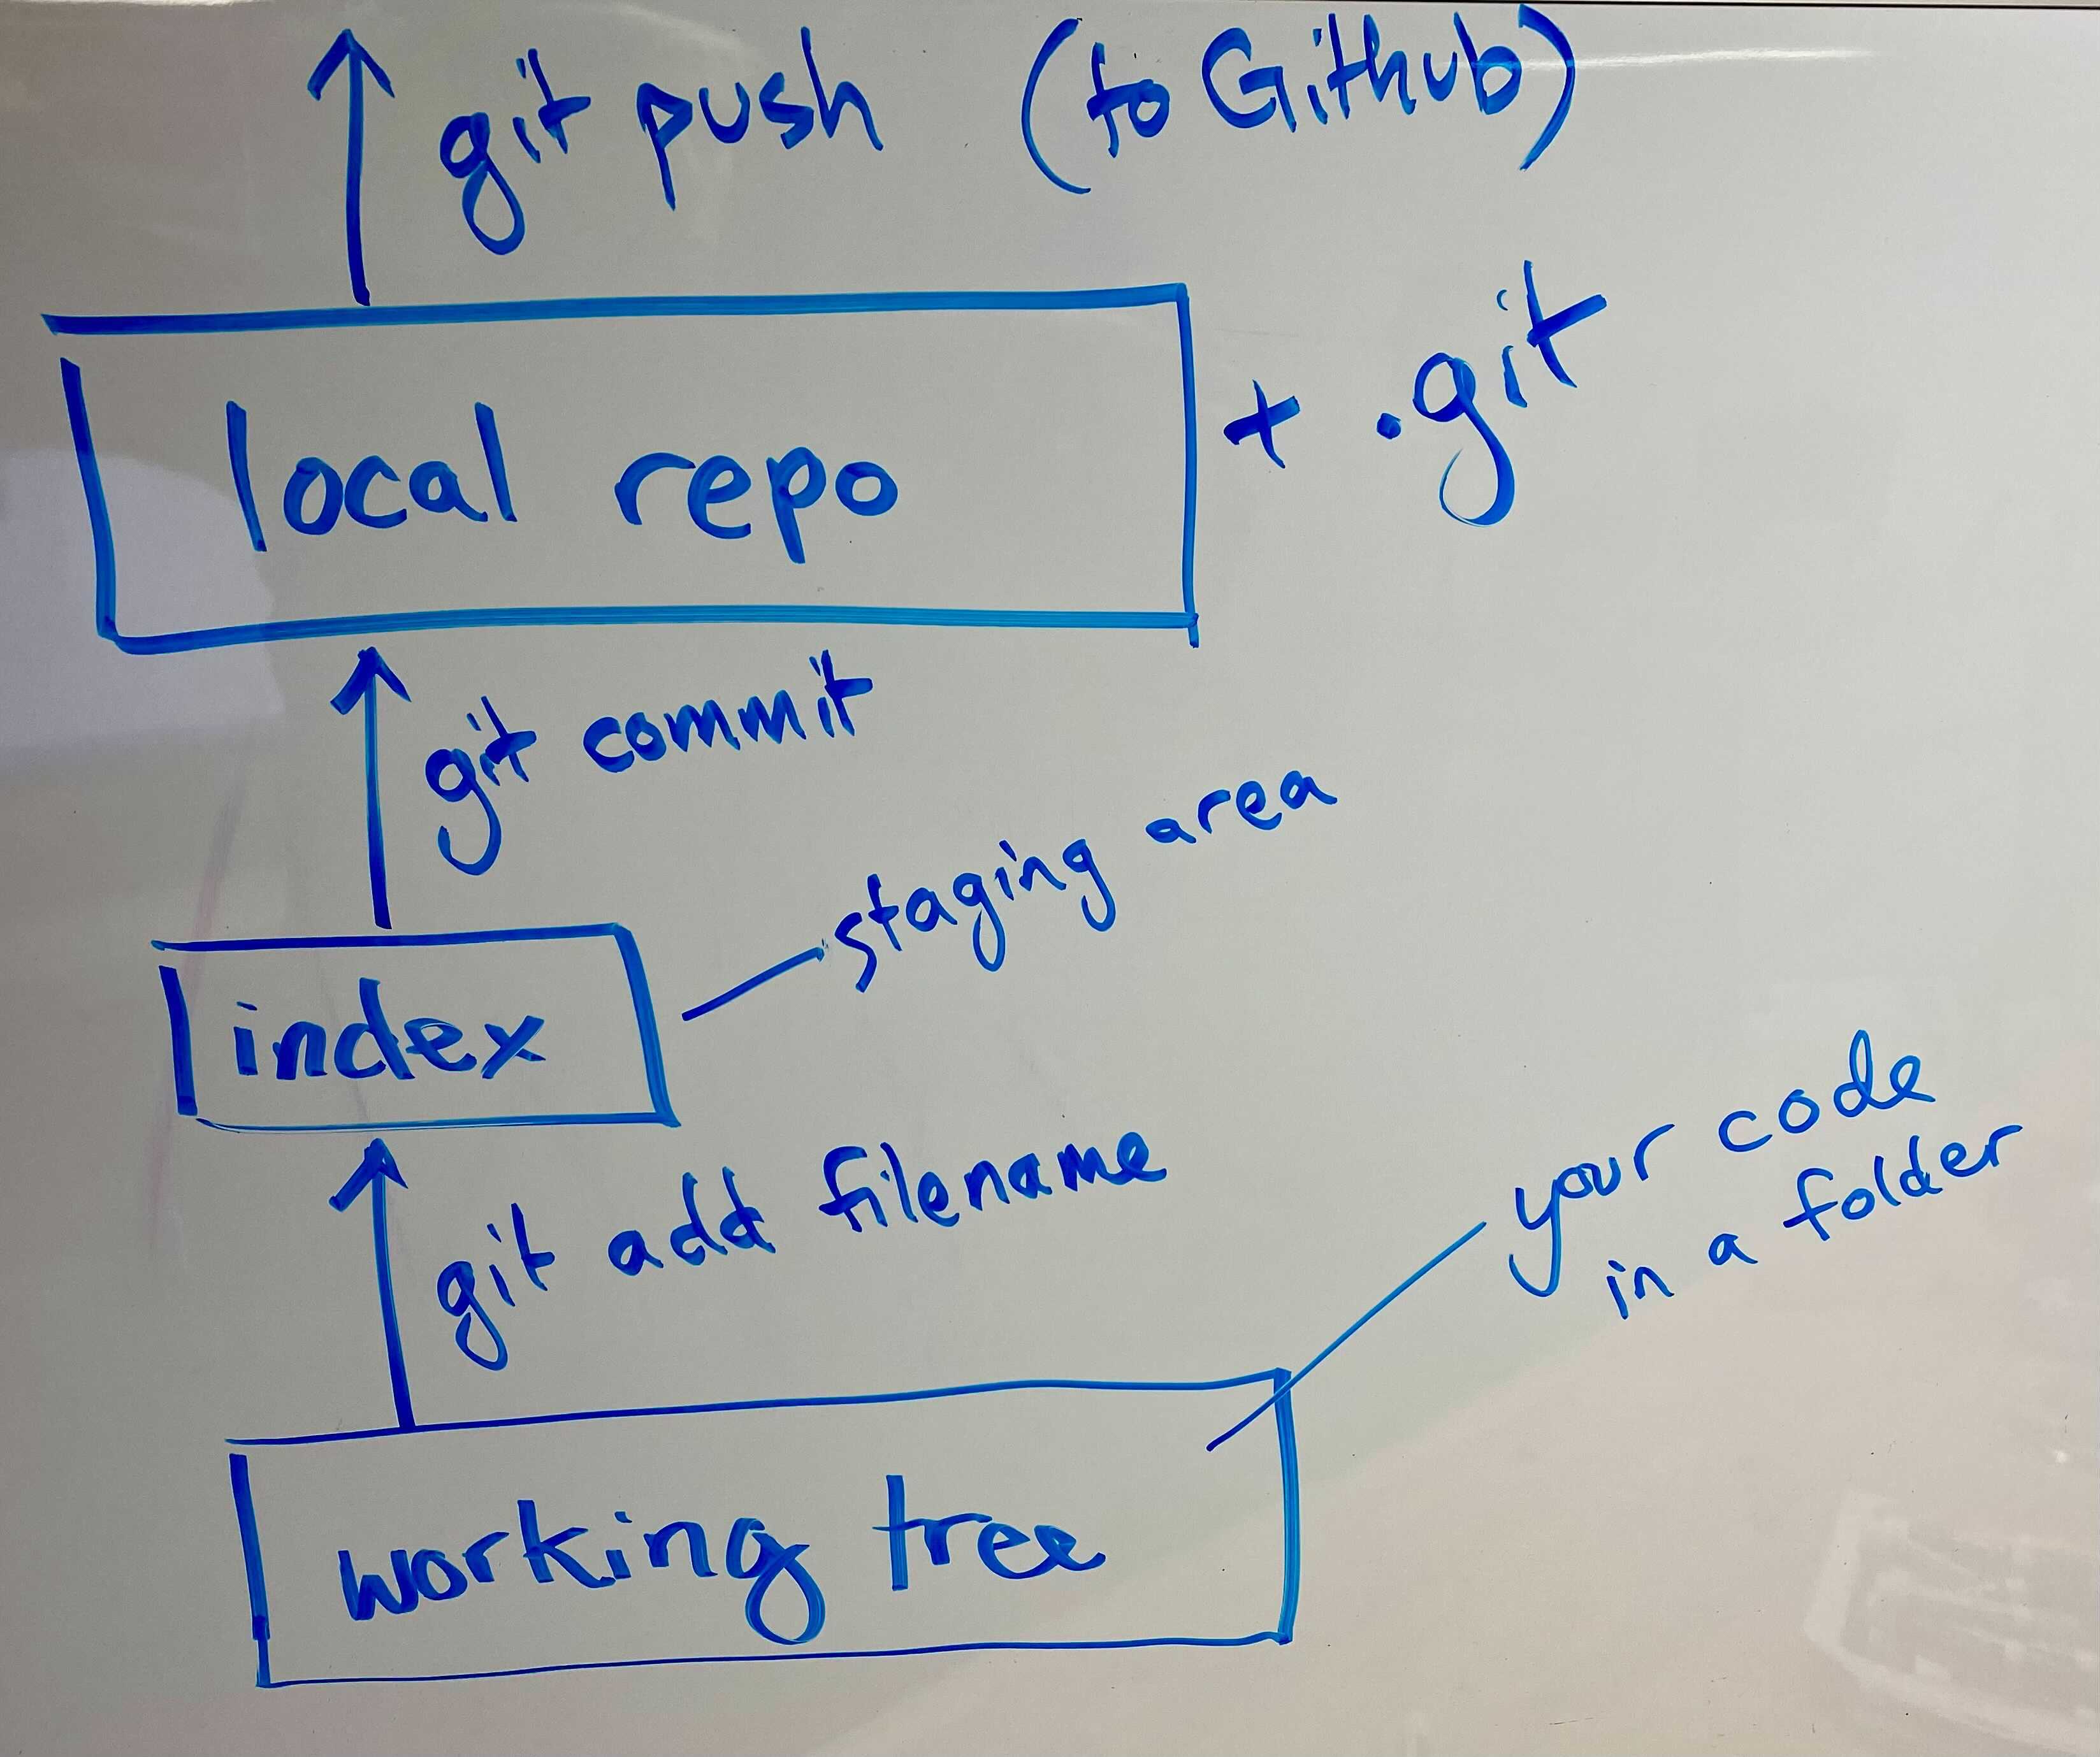 git push (to Github)
local repo + .git
git commit
staging area
index
git add filename
your code
in a folder
working tree